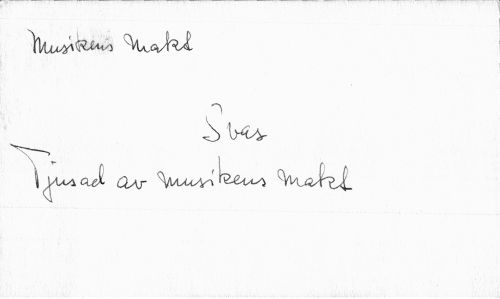 Musikens Makt
Svar
Tjusad av musikens makt